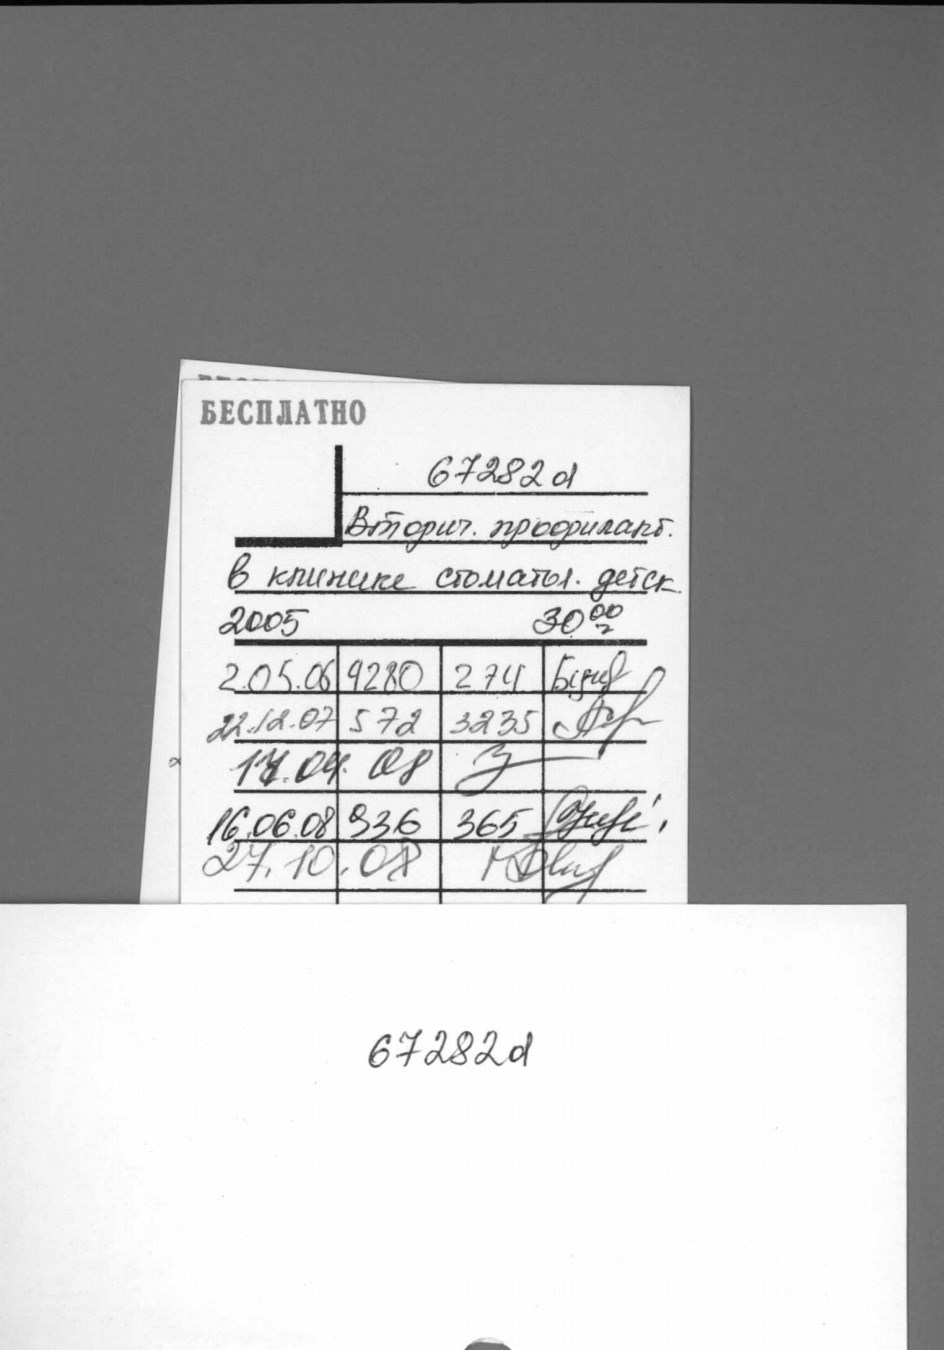 БЕСПЛАТНО
67282д
Вторич. профилакт.
в клинике стоматол. детск.
2005 30 00
2.05.06 9280 274
22.12.07 572 3235
08
16.06.08 936 365
27.10.08
67282д